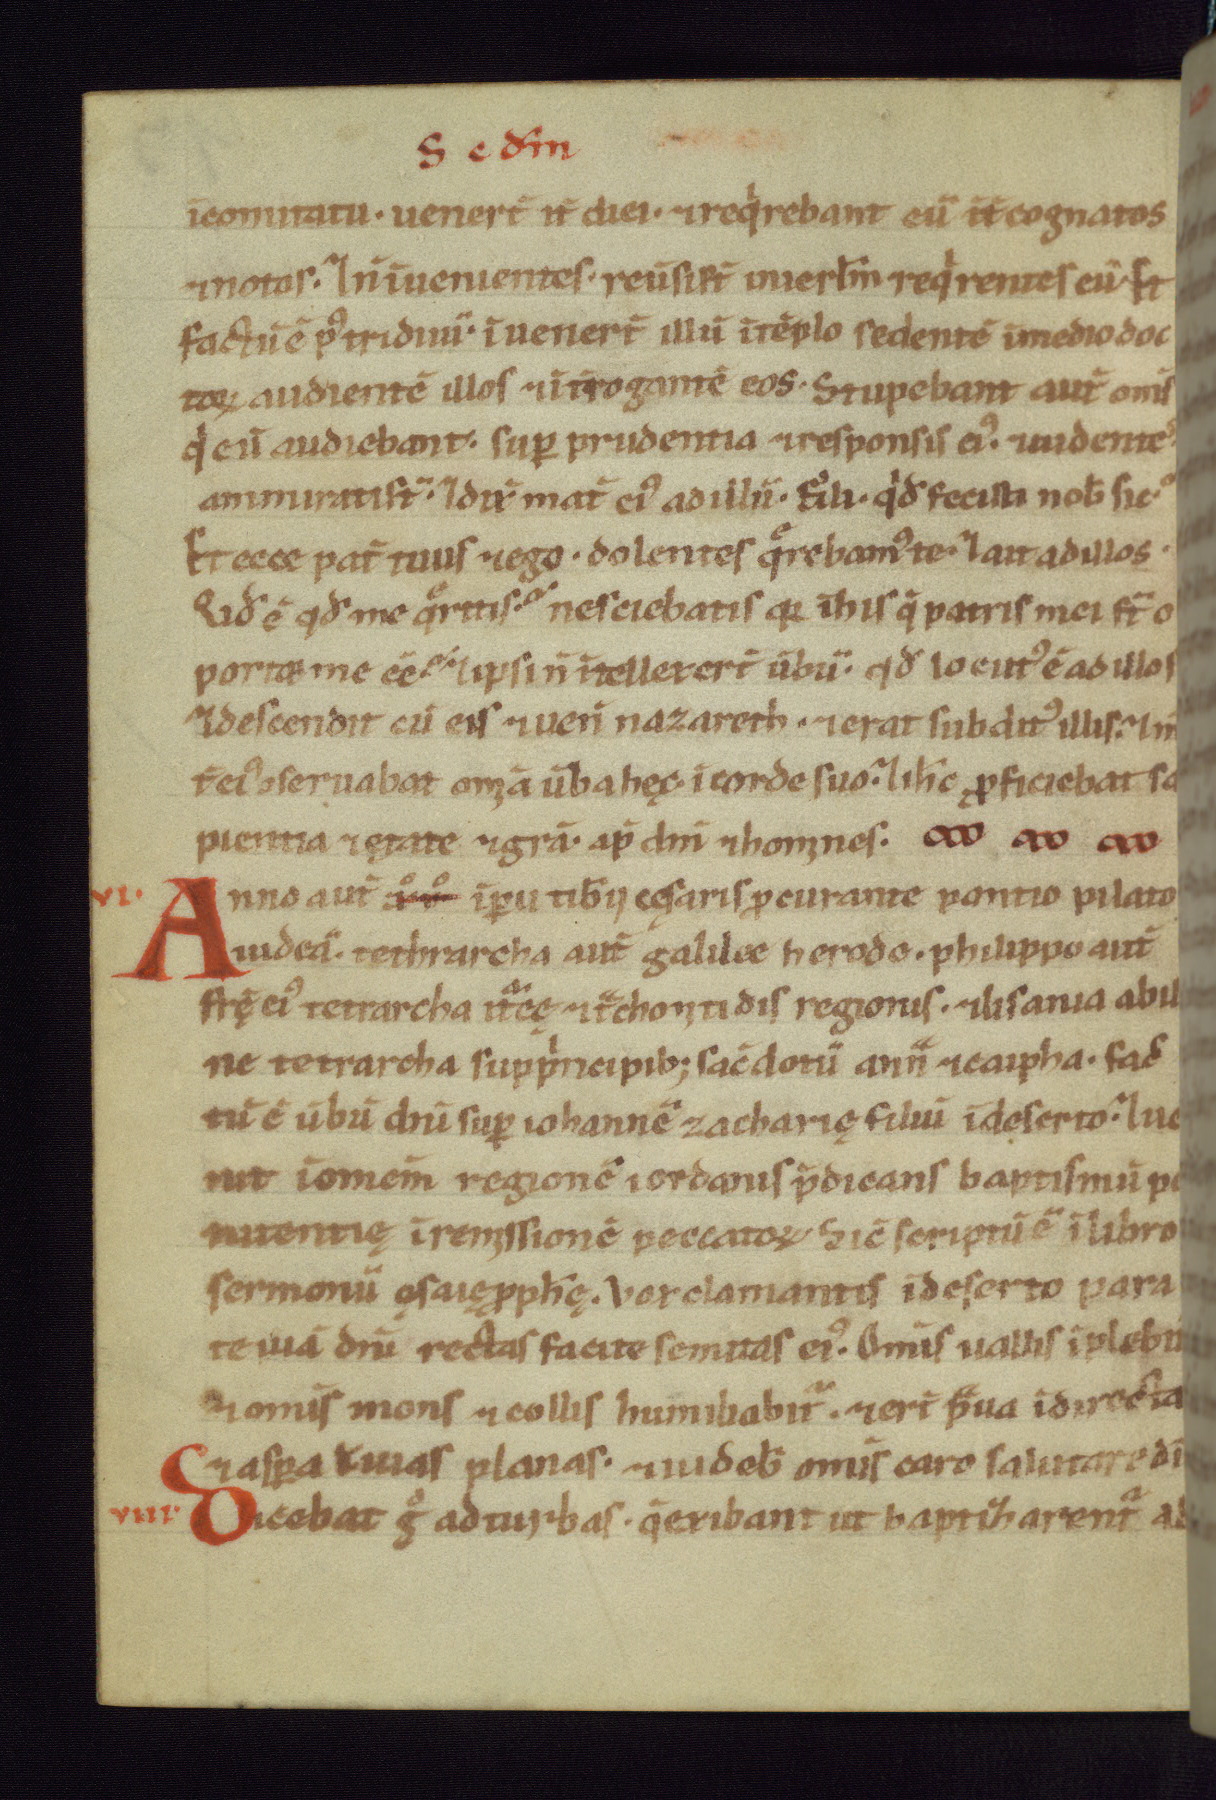 S e dm̄
ı̄comitatu · uenert̄ it̄ diei · ⁊ reqͥrebant eū īt̄ cognatos
⁊ notos · ⁊ n̄ ı̄uenientes · reūsiſt̄ inierl̄m reqͥrentes eū · Et
factū ē pꝰ triduū · ı̄uenert̄ illū ı̄tēplo sedentē ı̄medio doc
toꝝ audientē illos ⁊ ı̄t̄rogantē eos · Stupebant aut̄ om̄s
qͥ eū audiebant · suꝑ prudentia ⁊ responsis eiꝰ · ⁊ uidentes
ammiratiſt̄ · ⁊ dix̄ mat̄ eiꝰ ad illū · Fili · qͥd fecisti nob̄ sic ·
Et ecce pat̄ tuus ⁊ ego · dolentes qͣrebamꝰ te · ⁊ ait ad illos ·
Qid ē qd̄ me qͣritis · nesciebatis qꝛ ı̄his q̄ patris mei st̄ o
portet me eē · ⁊ ipsi n̄ ı̄tellexert̄ ūbū · qd̄ locutꝰ ē ad illos
⁊ descendit cū eis ⁊ uen̄ nazareth · ⁊ erat subditꝰ illis · ⁊ m̄
t̄ eiꝰ ꝯseruabat om̄ıa ūba hęc · ı̄ corde suo · ⁊ ih̄c ꝓficiebat sa
pientia ⁊ ętate ⁊ grā · ap̄ dm̄ ⁊ homines ·
vı · Anno aut̄ xͦvͦ ı̄ꝑıı tib̄ıj cęsaris ꝓcurante pontio pilato
iudeā · tethrarcha aut̄ galilee herode · philippo aut̄
fr̄ę eiꝰ tetrarcha it̄ͣęę ⁊ t̄ͣchonitidis regionis · ⁊ lisania abil
ne tetrarcha sub pͥncipib; sac̄dotū annͣ ⁊ caipha · fac̄
tū ē ūbū dn̄ı suꝑ iohannē zacharię filiū ı̄deserto · ⁊ ue
nit ı̄omem̄ regionē iordanis p̄dicans baptismū pe
nitentię ı̄remissionē peccatoꝝ sic̄ scriptū ē ı̄libro
sermonū ęsaię ꝓph̄ę · Vox clamantis ı̄deserto para
te uiā dn̄ı rectas facite semitas eiꝰ · Om̄ıs uallis ı̄plebit̄
⁊ om̄ıs mons ⁊ collis humiliabit̄ · ⁊ er̄t pͣua ı̄directa
⁊ aspa ı̄uias planas · ⁊ uideb̄ om̄ıs caro salutare dı̄
vııı · Dicebat gͦ ad turbas · q̄ exibant ut baptiӡarent̄ ab